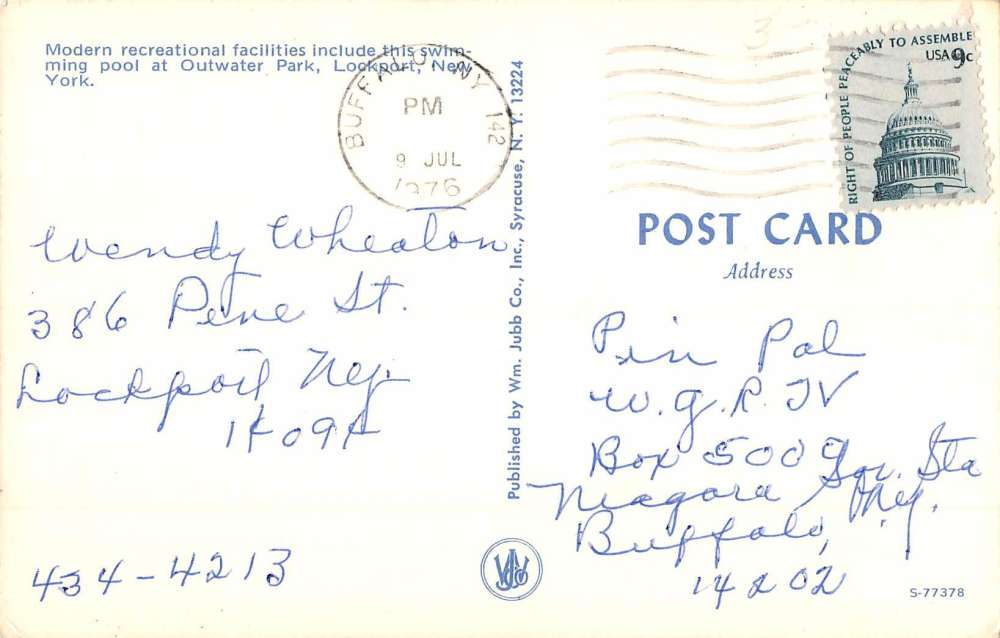 Modern recreational facilities include this swim-
ming pool at Outwater Park, Lockport, New
York.
BUFFALO NY 142
PM
9 JUL
1976
RIGHT OF PEOPLE PEACEABLY TO ASSEMBLE
USA 9c
POST CARD
Address
Wendy Wheaton
386 Pine St.
Lockport N.Y.
14094
434-4213
Published by Wm. Jubb Co., Inc., Syracuse, N. Y. 13224
Pin Pal
W.G.R. TV
Box 500 Sq. Sta
Niagara
Buffalo, N.Y.
14202
S-77378